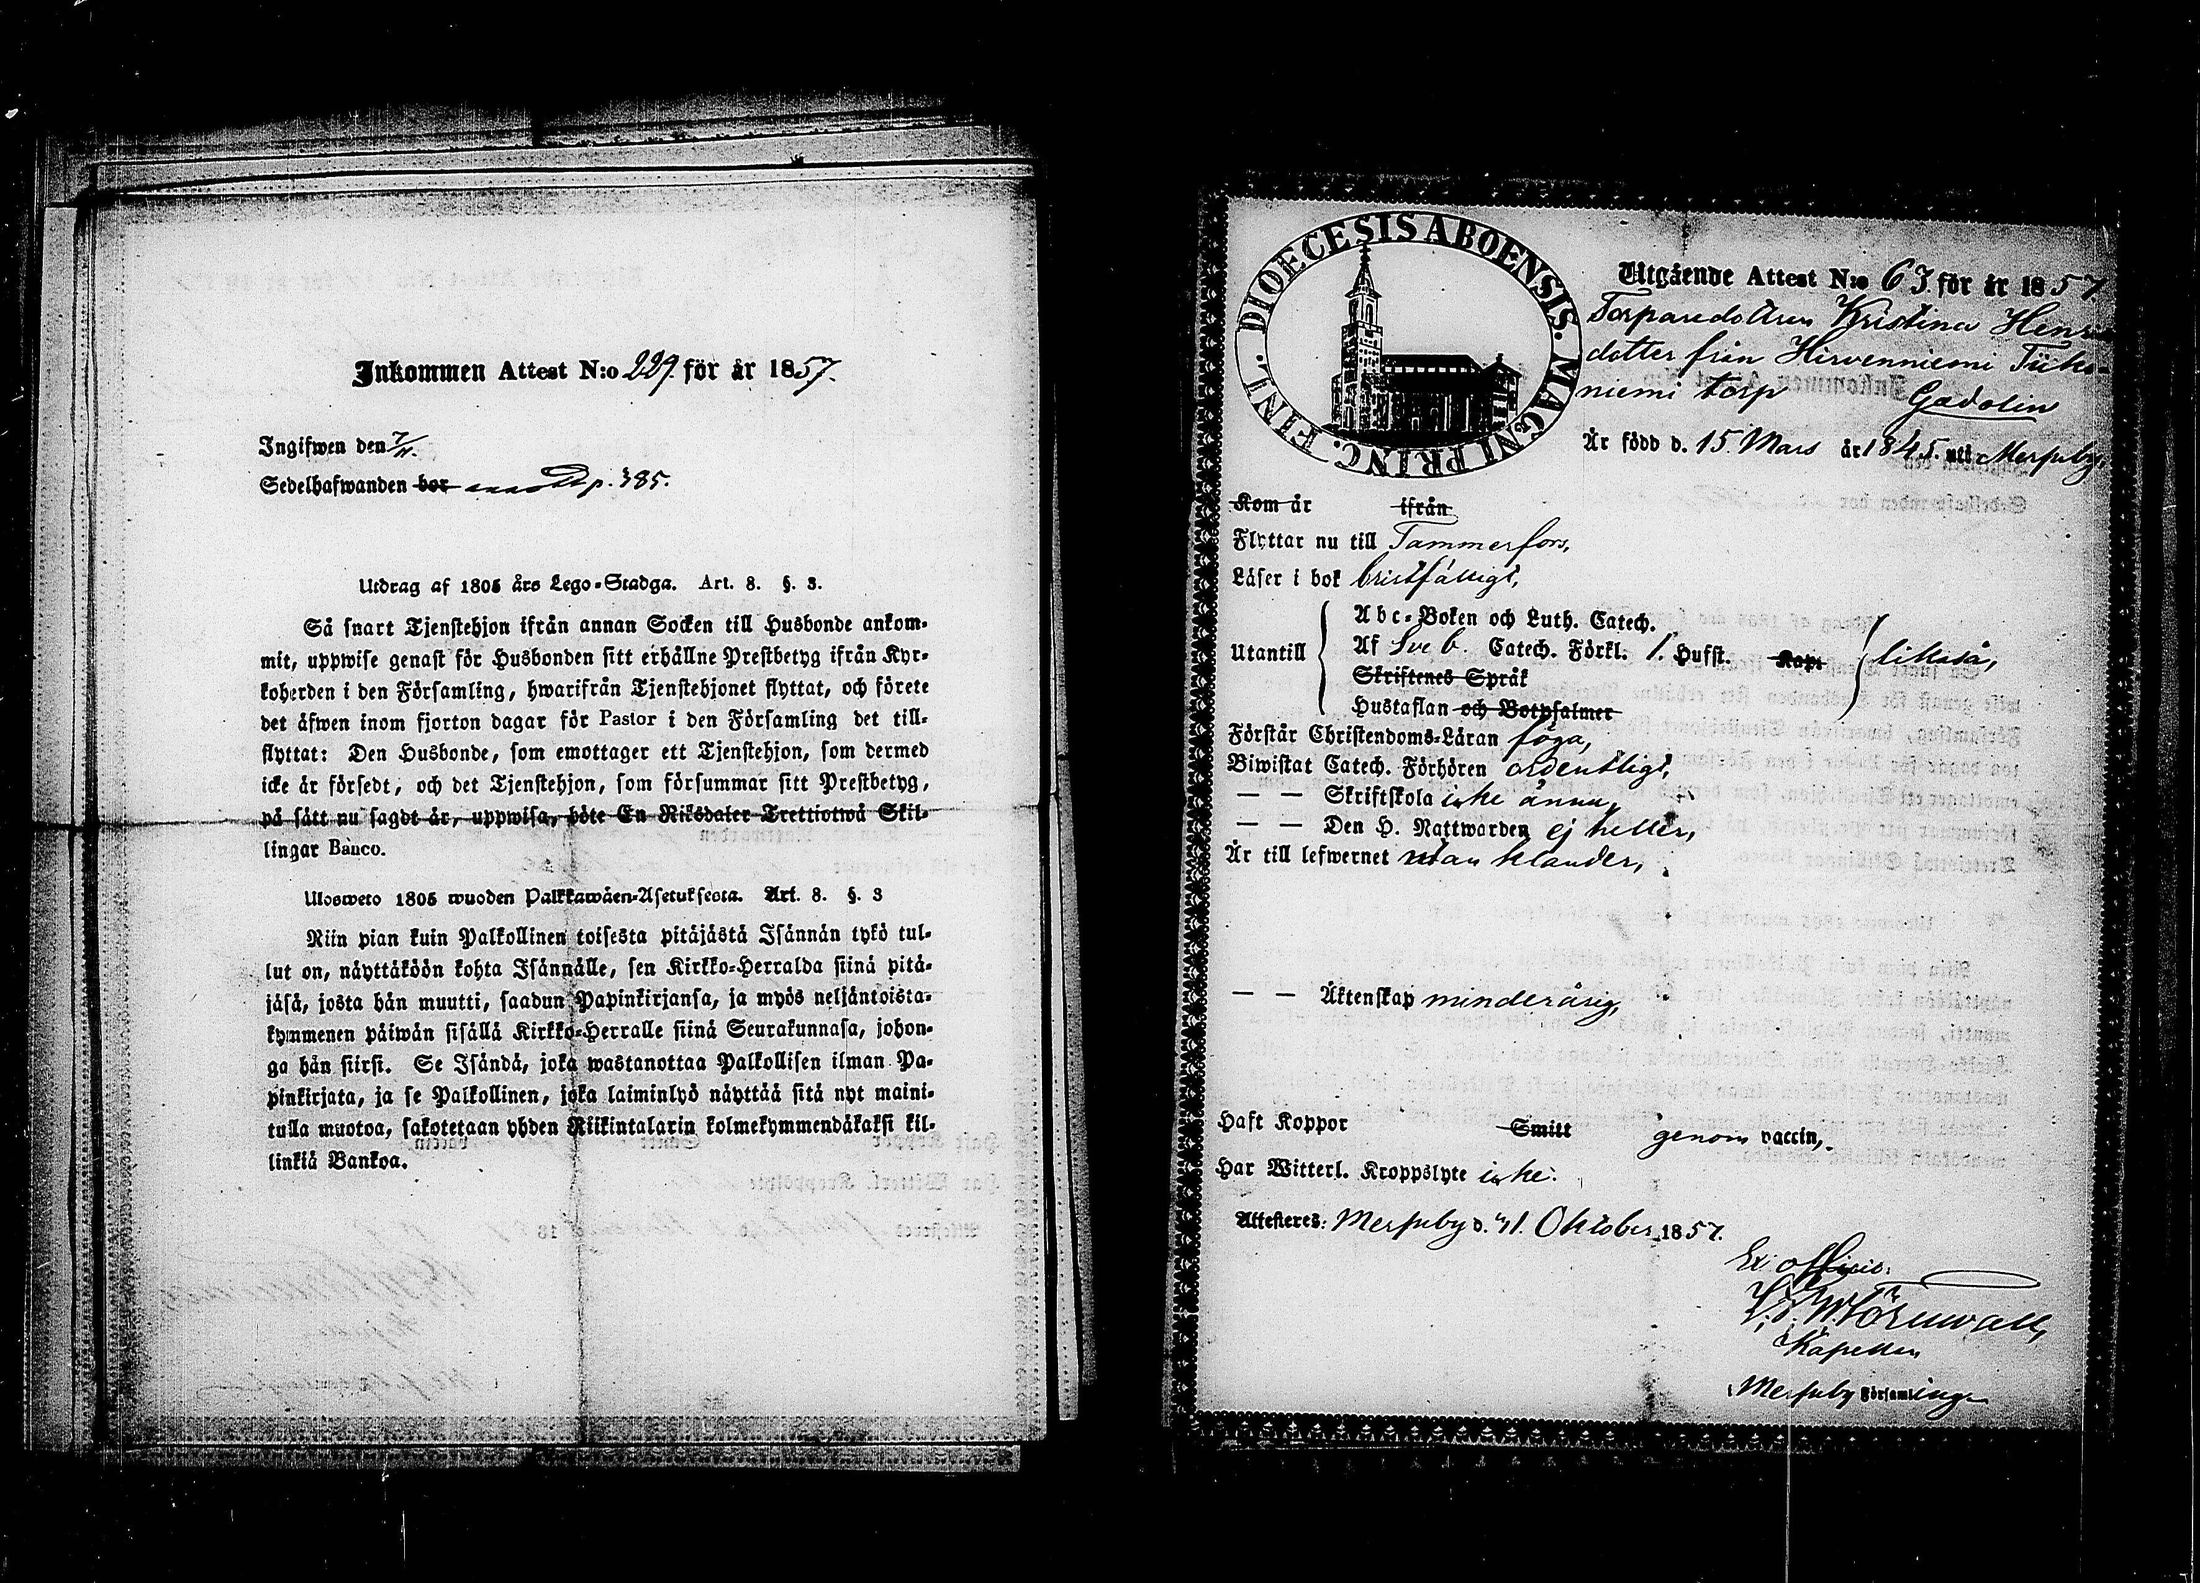 Inkommen Attest N:o 229. för år 1857.
Ingifwen den 7/11.
Sedelhafwanden bor p. 385.
Utdrag af 1805 års Lego-Stadga. Art. 8. §. 3.
Så snart Tjenstehjon ifrån annan Socken till Husbonde ankom-
mit, uppwise genast för Husbonden sitt erhållne Prestbetyg ifrån Kyr-
koherden i den Församling, hwarifrån Tjenstehjonet flyttat, och förete
det äfwen inom fjorton dagar för Pastor i den Församling det till-
flyttat: Den Husbonde, som emottager ett Tjenstehjon, som dermed
icke är försedt, och det Tjenstehjon, som försummar sitt Prestbetyg,
på sätt nu sagdt är, uppwisa, böte En Riksdaler Trettiotwå Skil-
lingar Banco.
Ulosweto 1805 wuoden Palkkawäen-Asetuksesta. Art. 8. §. 3
Niin pian kuin Palkollinen toisesta pitäjästä Isännän tykö tul-
lut on, näyttäköön kohta Isännälle, sen Kirkko-Herralda siinä pitä-
jäsä, josta hän muutti, saadun Papinkirjansa, ja myös neljäntoista-
kymmenen päiwän sisällä Kirkko-Herralle siinä Seurakunnasa, johon-
ga hän siirsi. Se Isändä, joka wastanottaa Palkollisen ilman Pa-
pinkirjata, ja se Palkollinen, joka laiminlyö näyttää sitä nyt maini-
tulla muotoa, sakotetaan yhden Riikintalarin kolmekymmendäkaksi kil-
linkiä Bankoa.
DIOECESIS ABOENSIS. MAGNI PRINC. FINL.
Utgående Attest N:o 63 för år 1857
Torparedottren Kristina Henr
dotter från Hirvenniemi Tiiko-
niemi torp Gadolin
Är född d. 15. Mars år 1845. uti Merjuby,
Kom år ifrån
Flyttar nu till Tammerfors,
Läser i bok bristfälligt,
Utantill
Abc-Boken och Luth. Catech.
Af Sveb. Catech. Förkl. 1. Hufst. Kap:
Skriftenes Språk
Hustaflan och Botpsalmer
likaså,
Förstår Christendoms-Läran föga,
Biwistat Catech. Förhören ordentligt,
— — Skriftskola icke ännu,
— — Den H. Nattwarden ej heller,
Är till lefwernet utan klander,
— — Äktenskap minderårig,
Haft Koppor Smitt genom vaccin,
Har Witterl. Kroppslyte icke.
Attesteres: Merjuby d. 41. Oktober 1857.
Ex officio:
Törnwall,
Kapellan
i Merjuby Församling